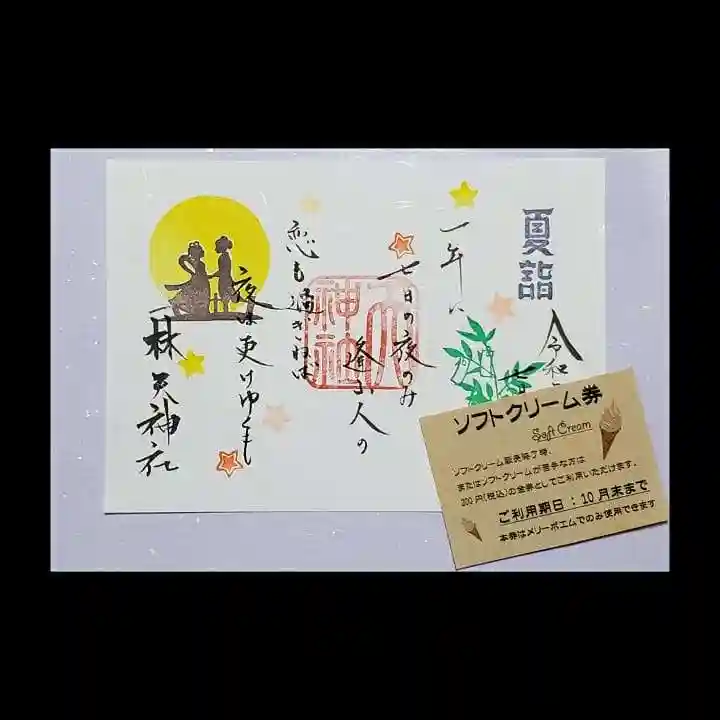 夏詣
令和
一年に
七日の夜のみ
逢ふ人の
恋も過ぎねば
夜は更けゆくも
天神社
ソフトクリーム券
Soft Cream
ソフトクリーム販売終了時、
またはソフトクリームが苦手な方は
200円(税込)の金券としてご利用いただけます。
ご利用期日:10月末まで
本券はメリーポエムでのみ使用できます